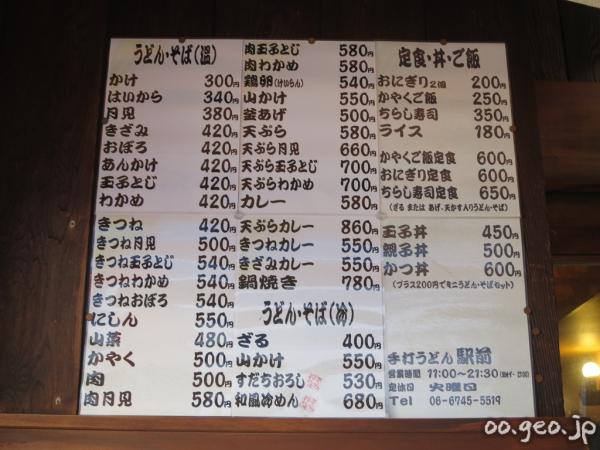 うどん・そば(温)
かけ 300円
はいから 340円
月見 380円
きざみ 420円
おぼろ 420円
あんかけ 420円
玉子とじ 420円
わかめ 420円
きつね 420円
きつね月見 500円
きつね玉子とじ 540円
きつねわかめ 540円
きつねおぼろ 540円
にしん 550円
山菜 480円
かやく 500円
肉 500円
肉月見 580円
肉玉子とじ 580円
肉わかめ 580円
鶏卵(けいらん) 540円
山かけ 550円
釜あげ 500円
天ぷら 580円
天ぷら月見 660円
天ぷら玉子とじ 700円
天ぷらわかめ 700円
カレー 580円
天ぷらカレー 860円
きつねカレー 550円
きざみカレー 550円
鍋焼き 780円
うどん・そば(冷)
ざる 400円
山かけ 550円
すだちおろし 530円
和風冷めん 680円
定食・丼・ご飯
おにぎり2個 200円
かやくご飯 250円
ちらし寿司 350円
ライス 180円
かやくご飯定食 600円
おにぎり定食 600円
ちらし寿司定食 650円
(ざる または あげ、天かす入りうどん・そば)
玉子丼 450円
親子丼 500円
かつ丼 600円
(プラス200円でミニうどん・そばセット)
手打うどん 駅前
営業時間 11:00~21:30
定休日 火曜日
Tel 06-6745-5519
oo.geo.jp